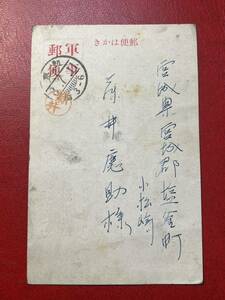 郵便はかき
軍事
郵便
宮城県宮城郡塩釜町
小松崎
荒井應助様